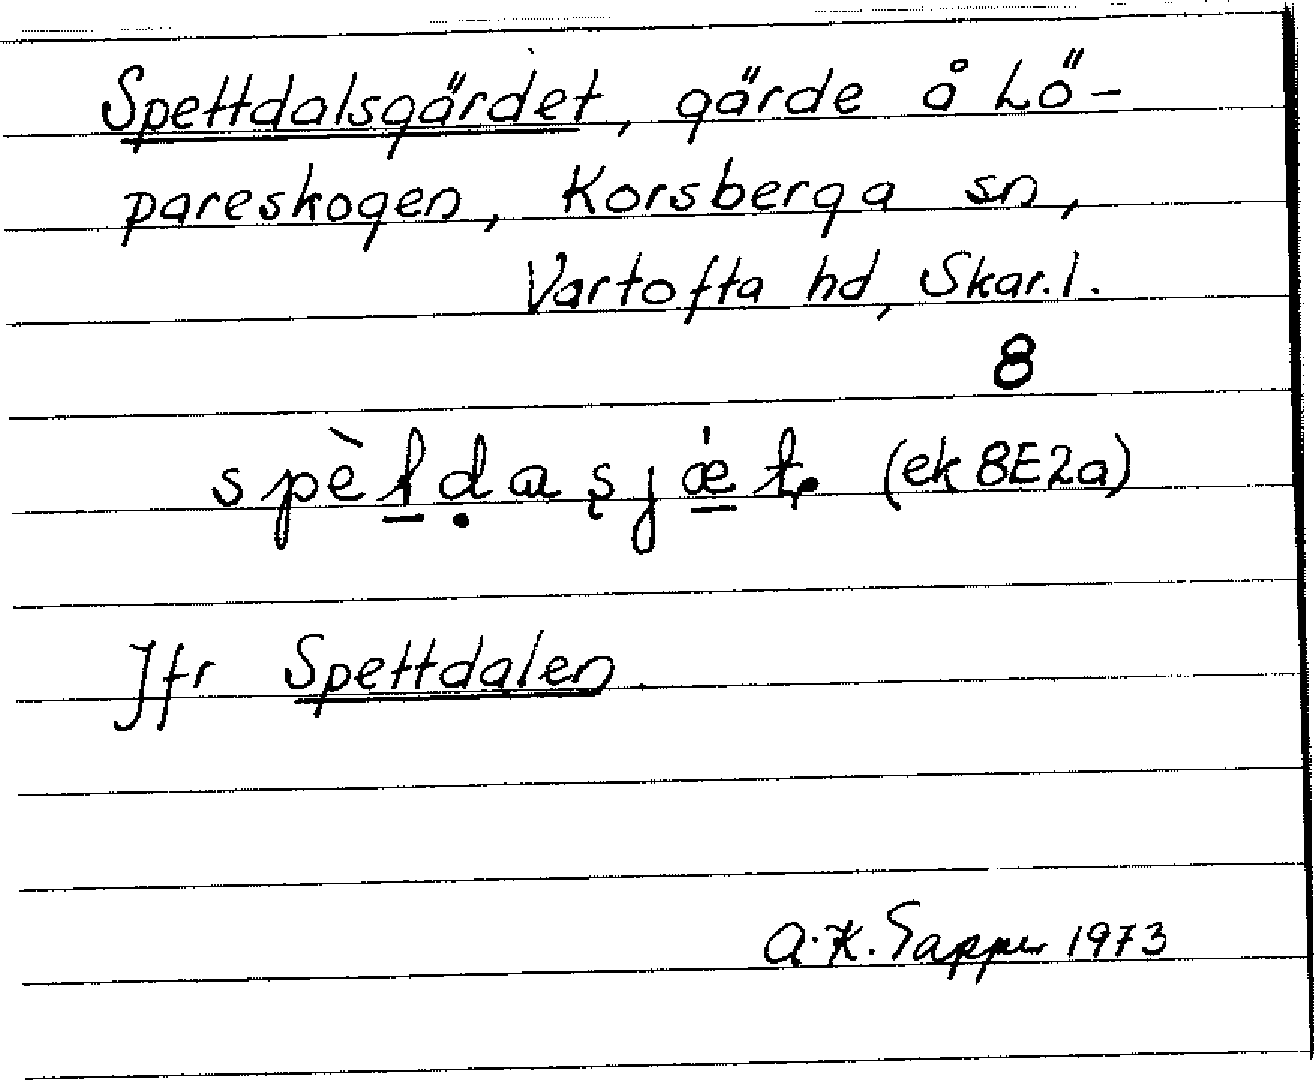 Spettdalsgärdet, gärde å Lö-
pareskogen, Korsberga sn,
Vartofta hd, Skar. l.
8
(ek 8E2a)
Jfr Spettdalen.
A.K. Sapper 1973